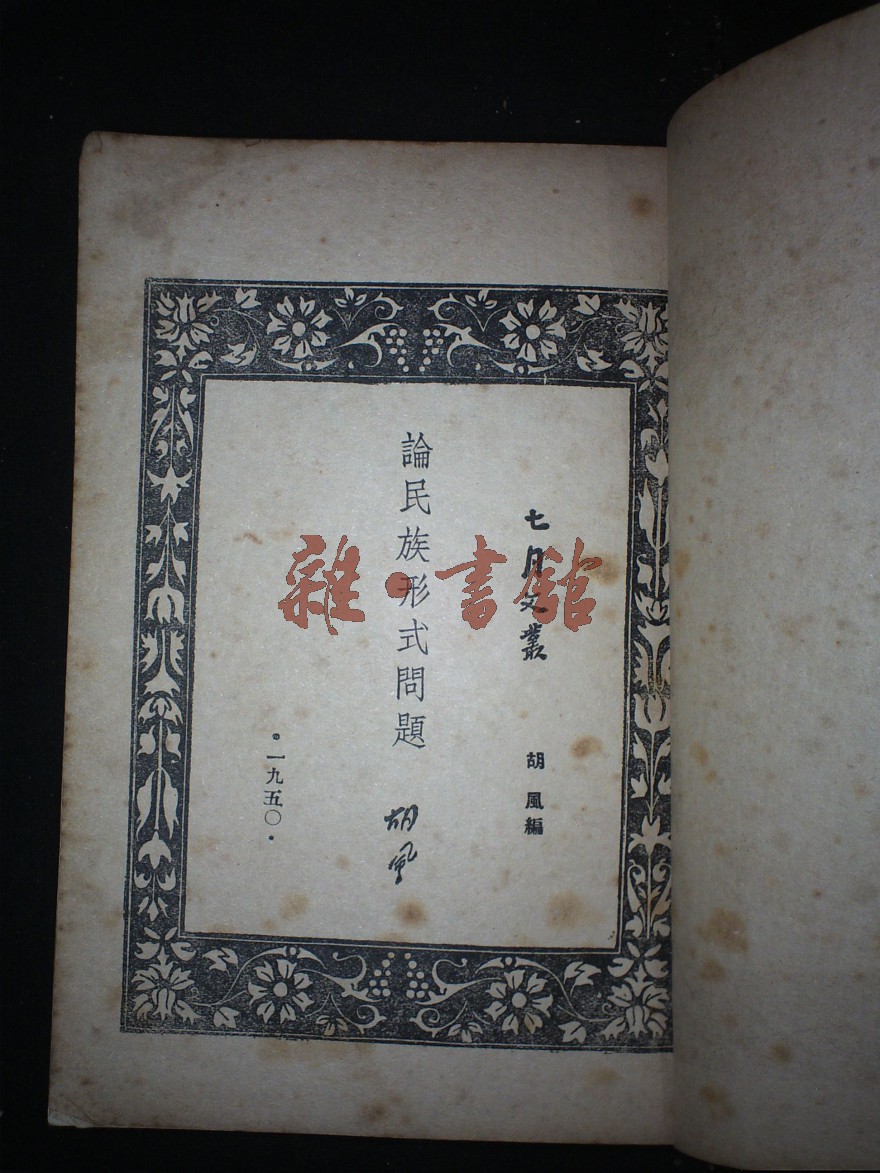 七月文叢
胡風編
論民族形式問題
胡風
•一九五〇•
雜•書館